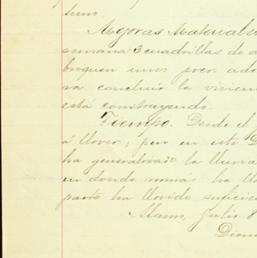 Mejoras Materiales
semana 3 cuadrillas de
briquen unos poco ado
va concluir la vivien
está construyendo.
Tiempo. Desde el
á llover; pero en este D
ha generalizado la lluvia
en donde menos ha ll
parte ha llovido suficie
Alamos, Julio 8